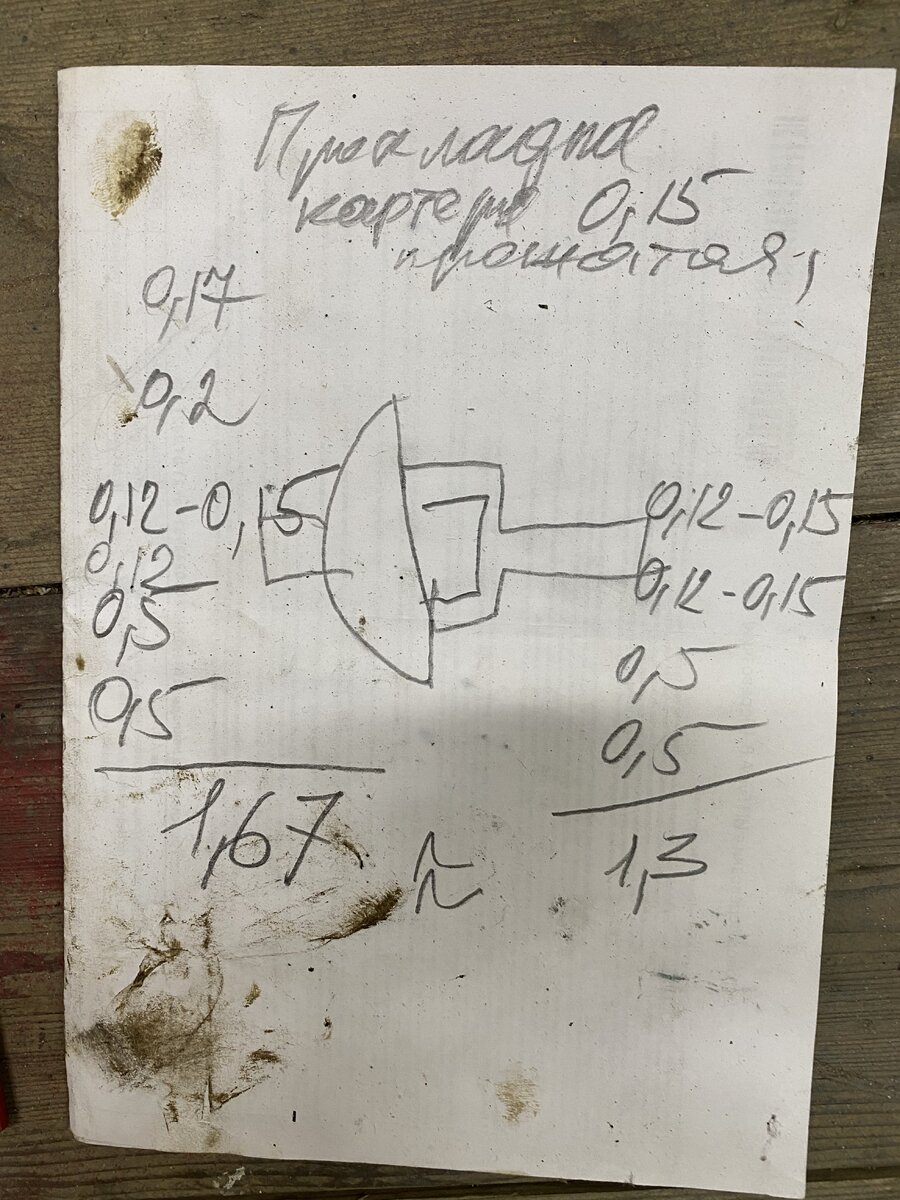 Прокладка
картера 0,15
прожатая,
0,17
0,2
0,12-0,15
0,12
0,5
0,5
1,67
≈
0,12-0,15
0,12-0,15
0,5
0,5
1,3